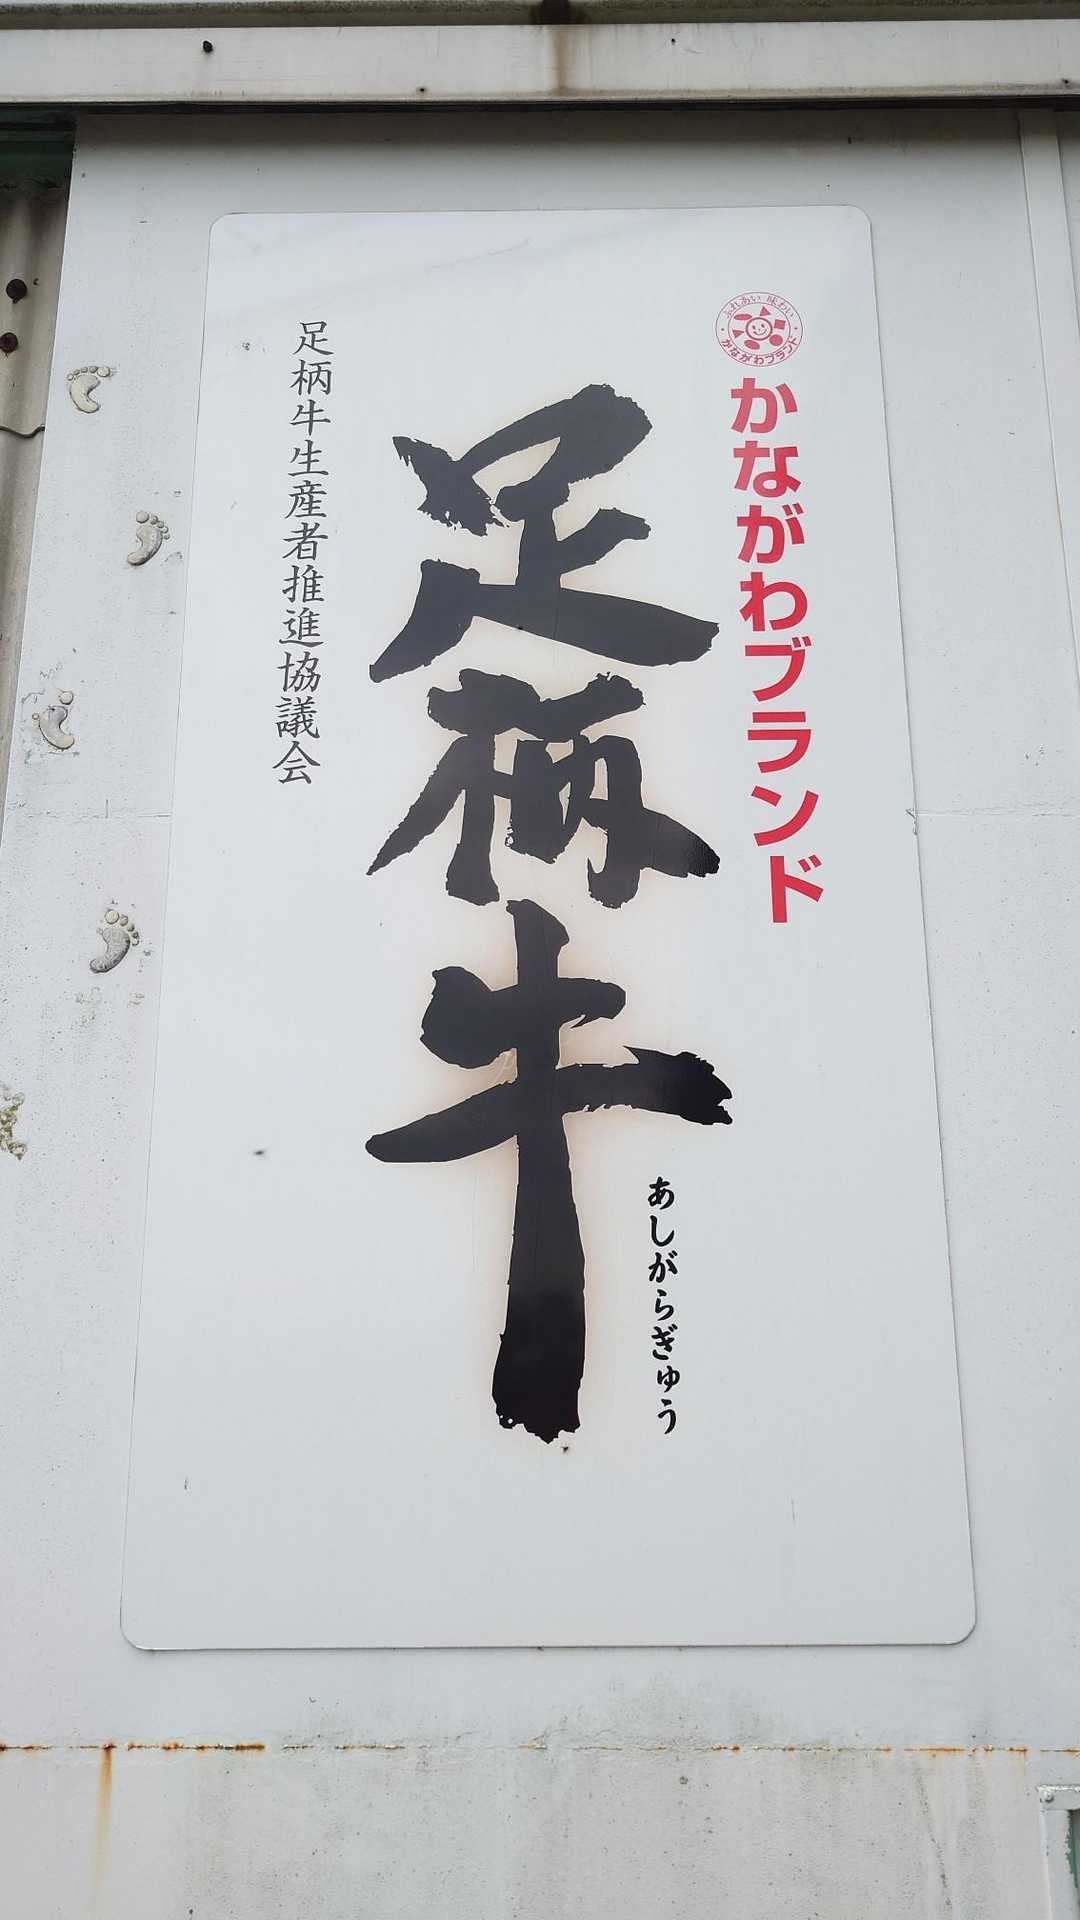 ふれあい 味わい
かながわブランド
かながわブランド
足柄牛
あしがらぎゅう
足柄牛生産者推進協議会